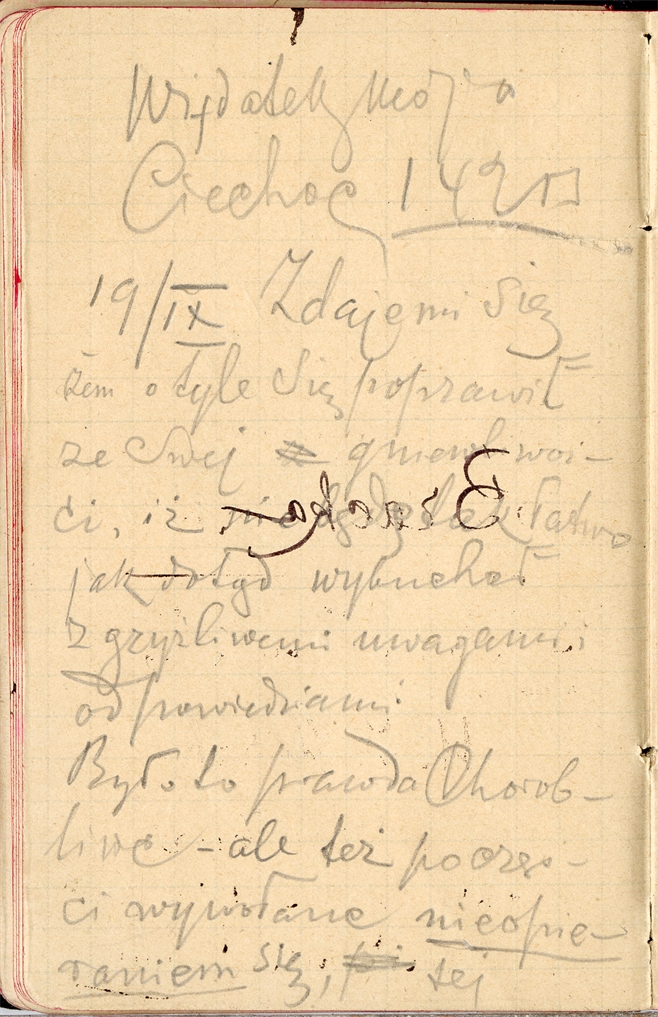 Wydatek mój a
Ciechoc 142
19/IX Zdaje mi się
żem o tyle się poprawił
ze swej gniewliwoś-
ci, iż nie będę tak łatwo
jak dotąd wybuchał
z gryźliwemi uwagami i
odpowiedziami.
Było to prawda Chorob-
liwe - ale też po częś-
ci wywołane nieopie-
raniem się, tej